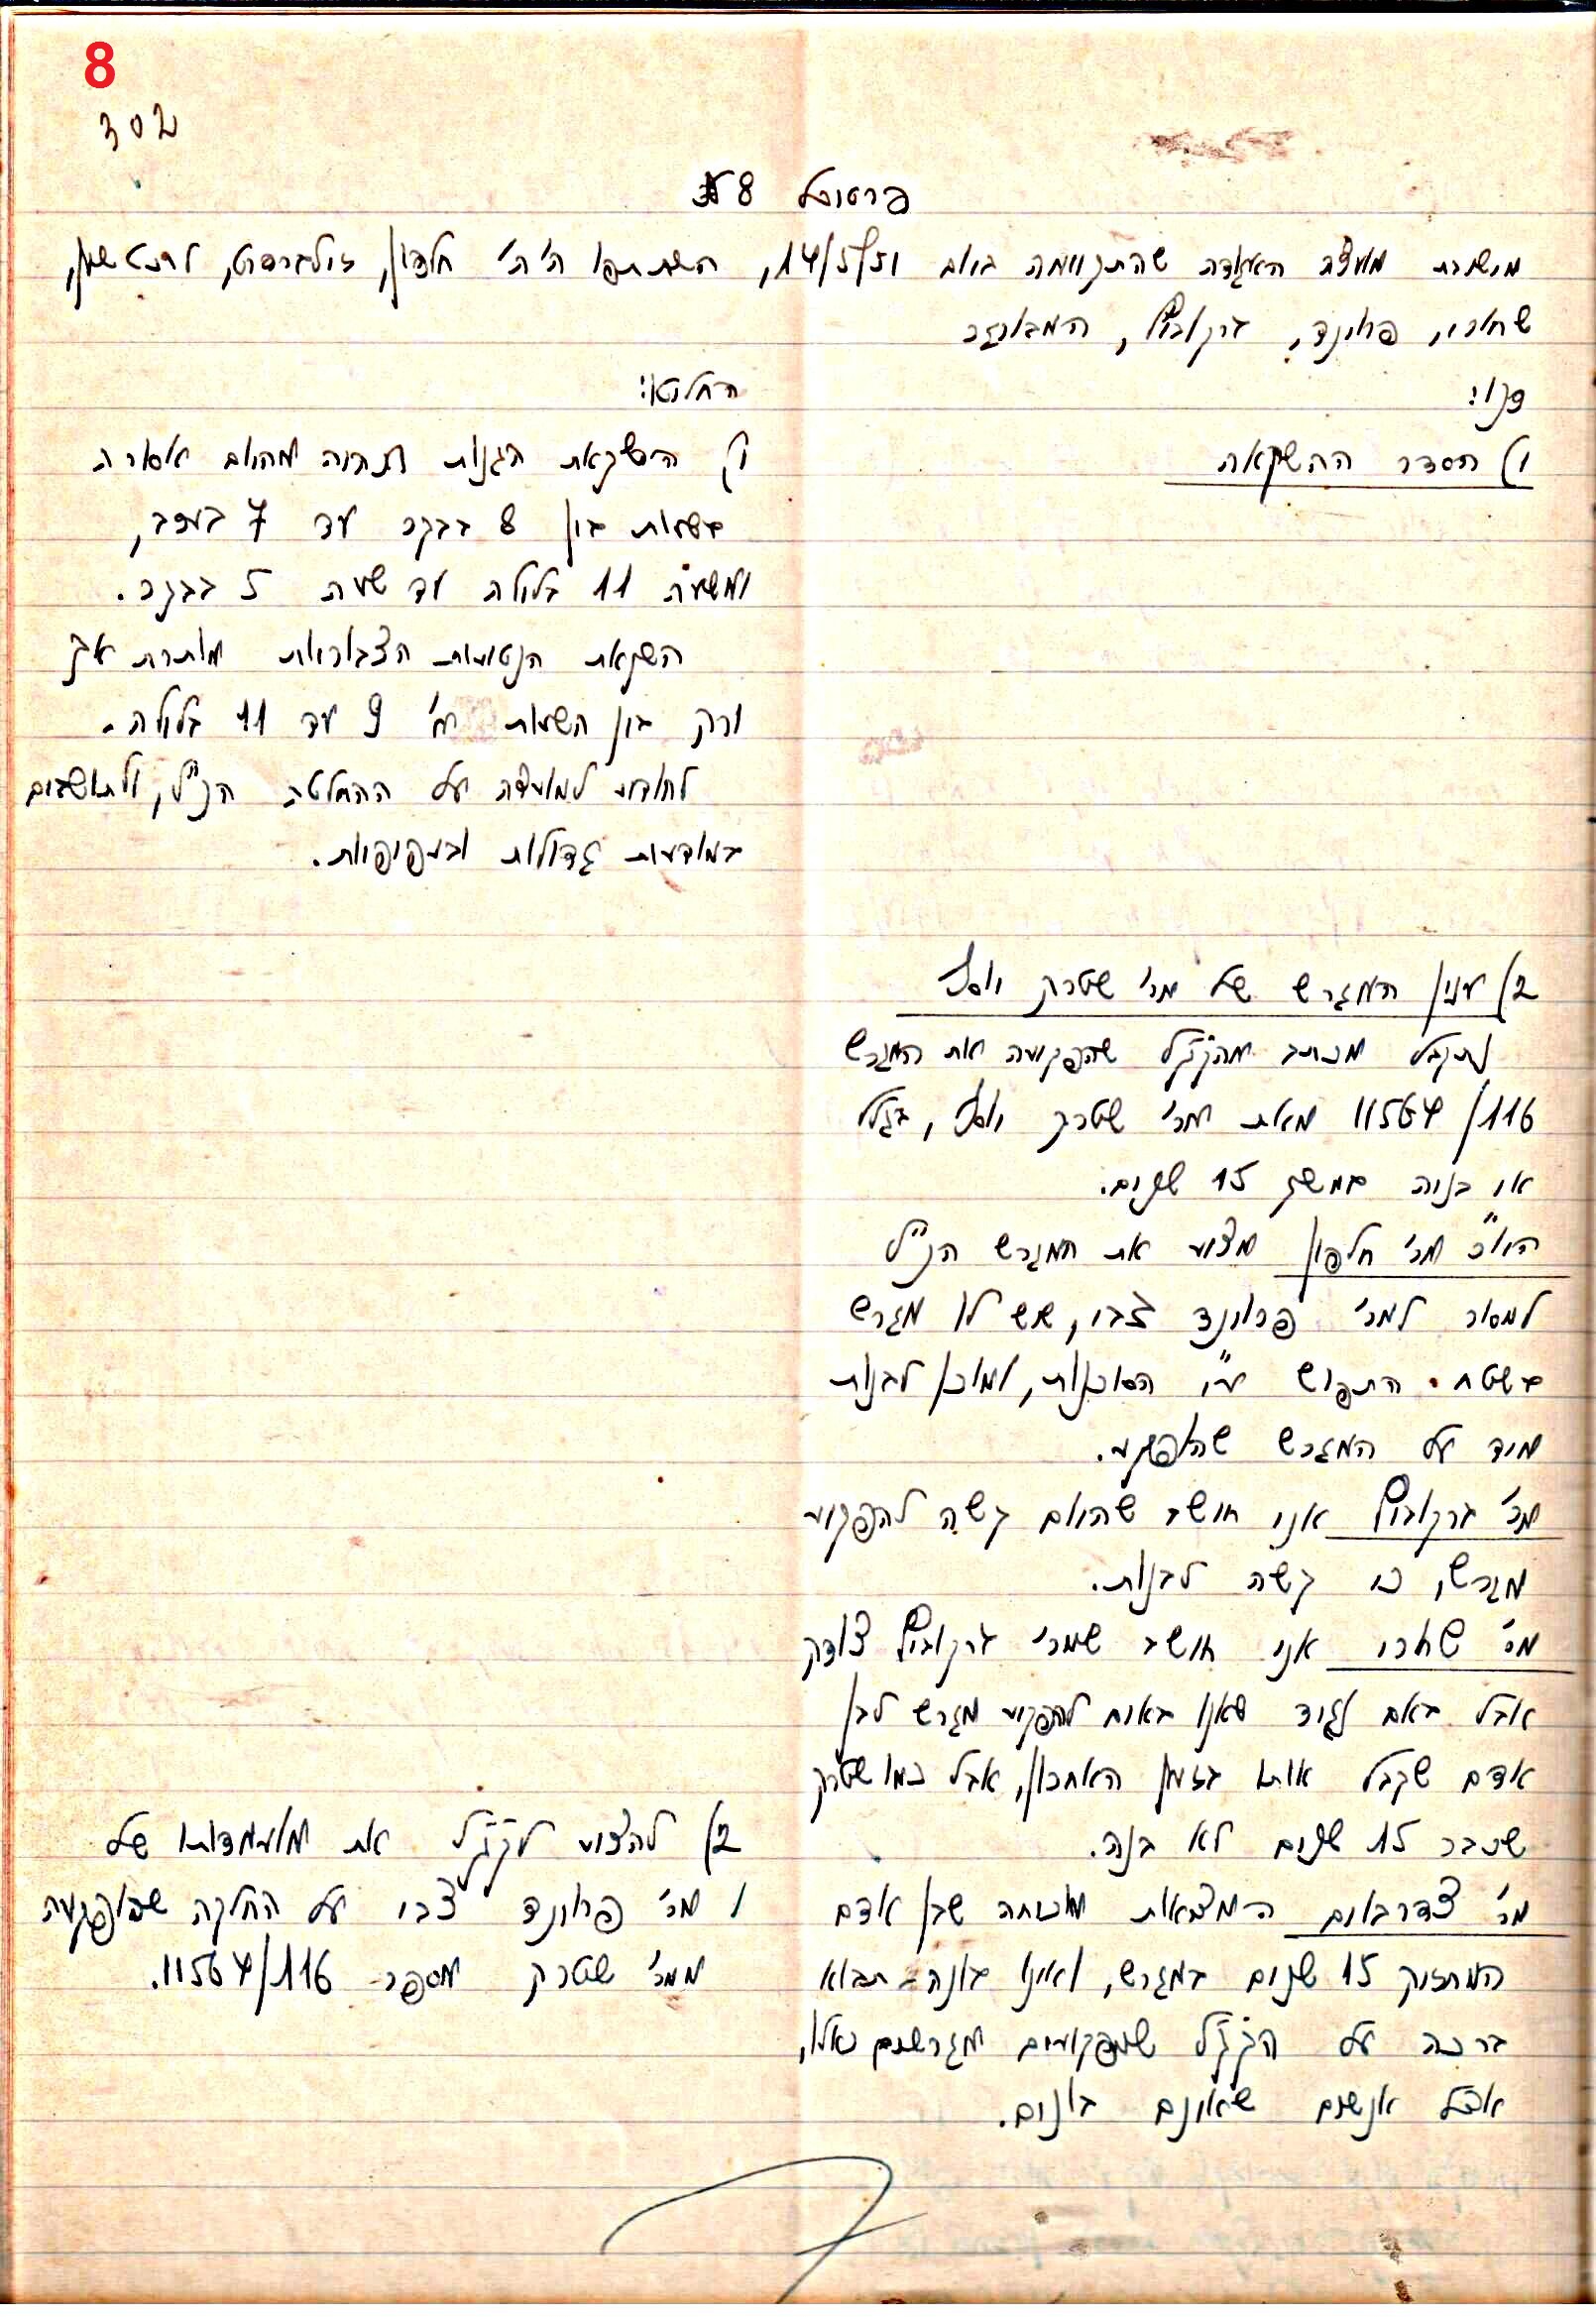 8
302
פרטוכל 8
מישיבת מועצת האגודה שהתקיימה ביום 14/5/51, השתתפו ה'ה' חלפון, זילברברט,
שחורי, פרוינד, ברקוביץ, המבורגר
סניו:
החלטו:
1) הסדר ההשקאה
1) השקאת הגנות תהיה מהיום אסורה
בשעות בין 8 בבקר עד 7 בערב,
ומשעה 11 בלילה עד שעה 5 בבקר.
השקאת הנטיעות הצבוריות מותרת אך
ורק בין השעות מ' 9 עד 11 בלילה.
להודיע למועצה על ההחלטה הנ"ל, ולתושבים
במודעות גדולות ובעפיפיות.
2) ענין המגרש של מר' שטרק יוסף
נתקבל מכתב מהקק"ל שהפקיעה את המגרש
11564/116 מאת מר' שטרק יוסף, בגלל
אי בניה במשך 15 שנים.
היו"ר מר' חלפון מציע את המגרש הנ"ל
למסור למר' פרוינד צבי, שיש לו מגרש
בשטח התפוש ע"י הסוכנות, ומוכן לבנות
מיד על המגרש שהופקע.
מר' ברקוביץ אני חושב שהיום קשה להפקיע
מגרש, כי קשה לבנות.
מר' שחורי אני חושב שמר' ברקוביץ צודק
אבל באם נגיד שאנו באים להפקיע מגרש לבן
אדם שקבל אותו בזמן האחרון, אבל כמו שטרק
שכבר 15 שנים לא בנה.
מר' צדרבוים המציאות מוכיחה שבן אדם
המחזיק 15 שנים במגרש, ואינו בונה - תבוא
ברכה על הקק"ל שמפקיעים מגרשים כאלו,
אצל אנשים שאינם בונים.
2) להציע לקק"ל את מועמדותו של
מר' פרוינד צבי על החלקה שהופקעה
ממר' שטרק מספר 11564/116.